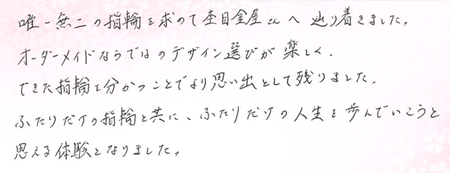 唯一無二の指輪を求めて杢目金屋さんへ辿り着きました。
オーダーメイドならではのデザイン選びが楽しく、
できた指輪を分かつことでより思い出として残りました。
ふたりだけの指輪と共に、ふたりだけの人生を歩んでいこうと
思える体験となりました。